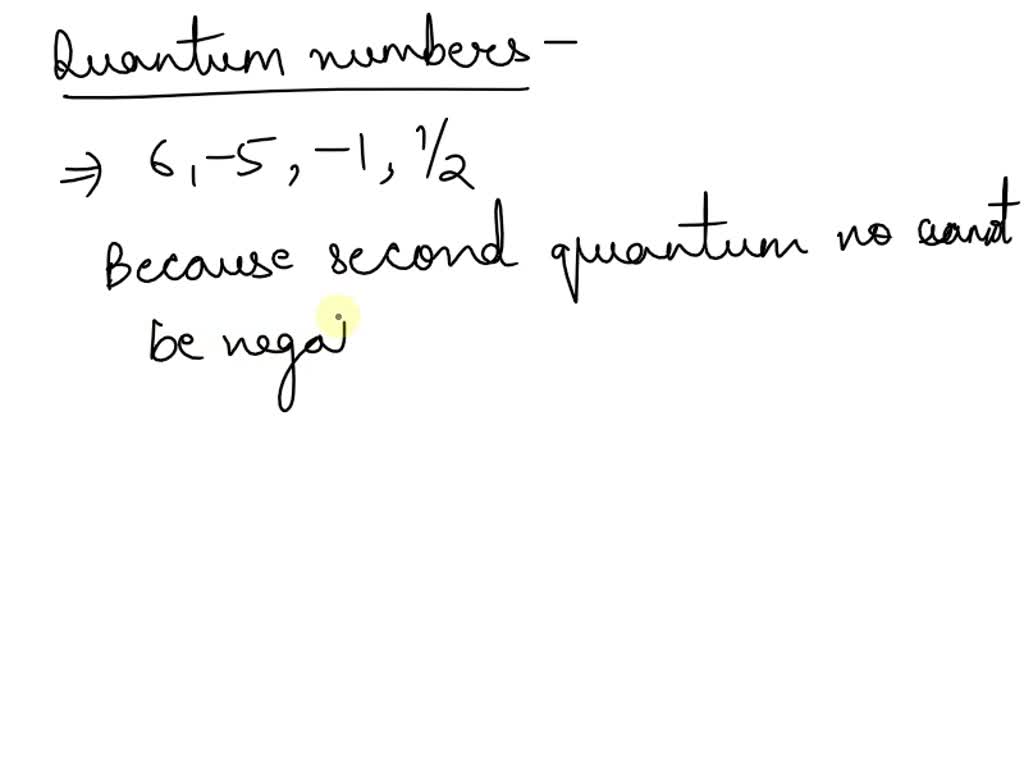 Quantum numbers -
⇒ 6, -5, -1, 1/2
Because second quantum no
be negat